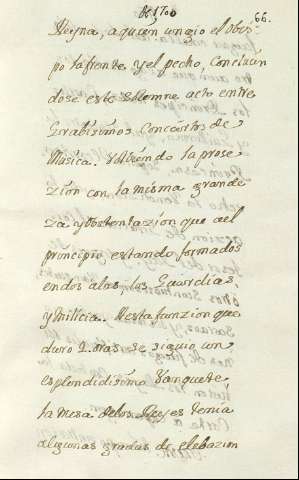 de 1700
66.
Reyna, a quien ungio el Obis-
po la frente, y el pecho, Concluien
dose este solemne acto entre
Grabisimos Conciertos de
Musica. Volbiendo la prose
zion con la misma grande
za y obstentazion que a el
principio, estando formados
en dos alas, las Guardias,
y Milicia. A esta funzion que
duro 2 oras se siguio un
esplendidisimo Vanquete,
la mesa de los Reyes tenia
algunas gradas de elebazion